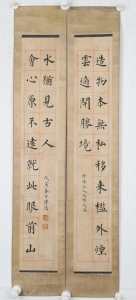 造物本無私移來檻外煙
雲適開勝境
會心原不遠就此眼前山
水猶見古人